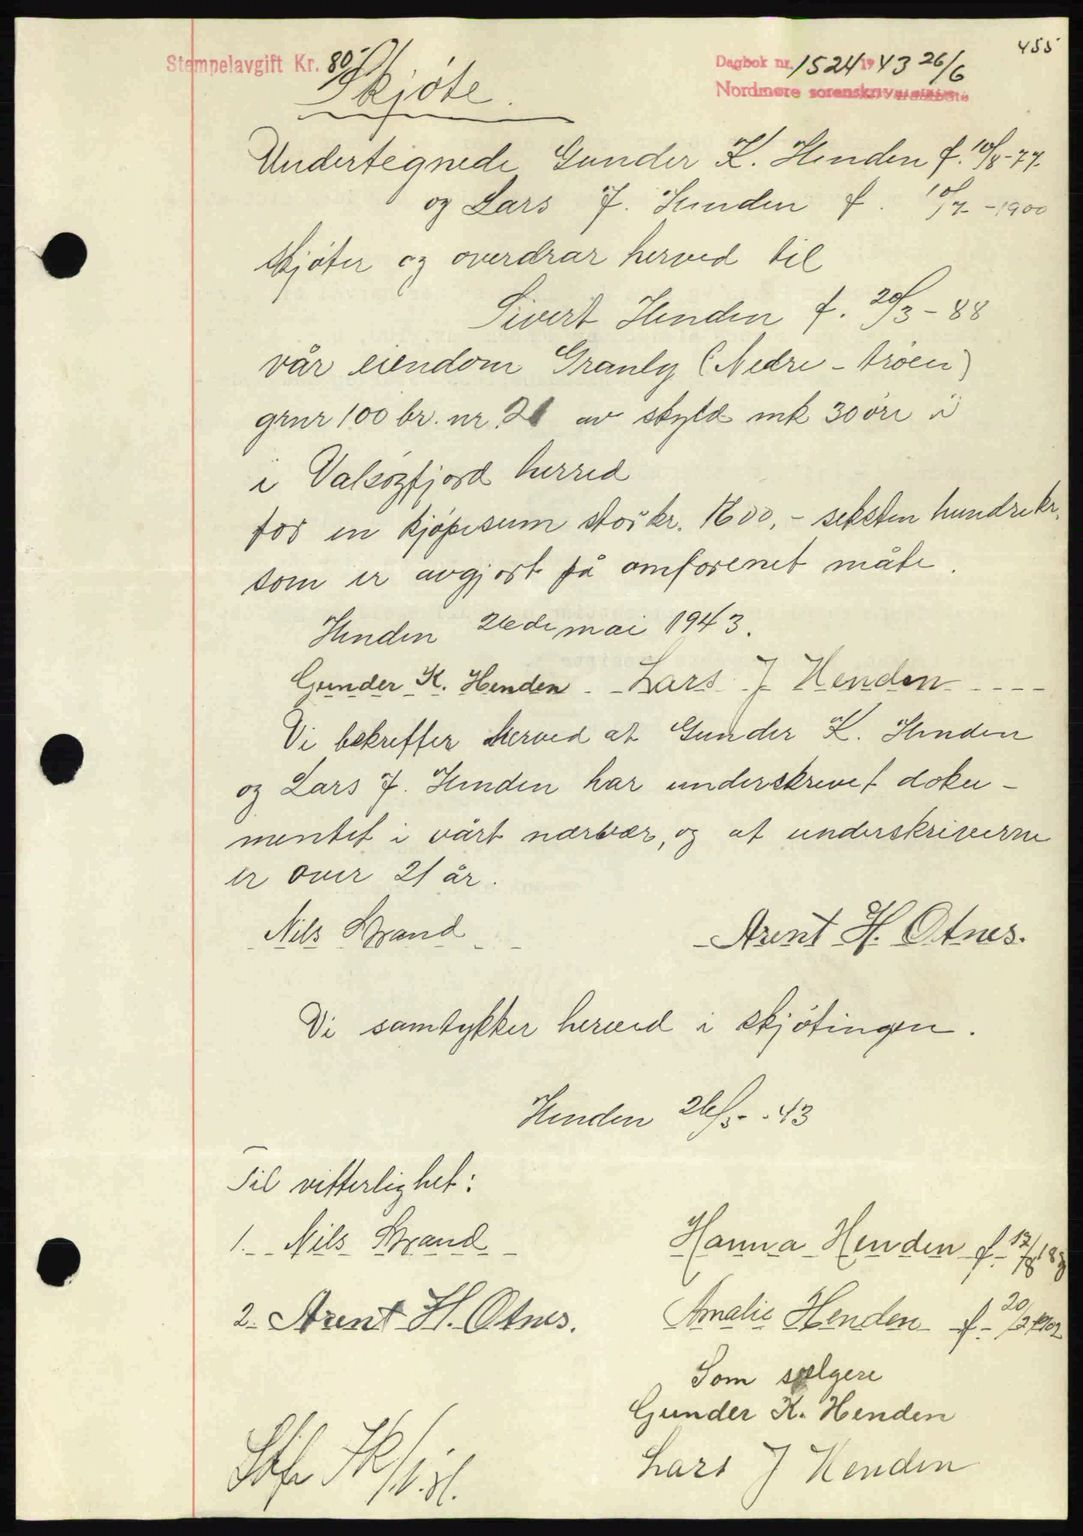 455
Stempelavgift Kr. 80,-
Dagbok nr. 1524 19 43 26/6
Nordmøre sorenskriverembete
Skjøte.
Undertegnede Gunder K. Henden f. 10/8-77
og Lars J. Henden f. 10/7-1900
skjøter og overdrar herved til
Sivert Henden f. 20/3-88
vår eiendom Granly (Nedre-trøen)
grnr 100 br. nr. 21 av skyld mk 30 øre i
i Valsøyfjord herred
for en kjøpesum stor kr. 1600,- seksten hundre kr.
som er avgjort på omforenet måte.
Henden 26de mai 1943.
Gunder K. Henden Lars J Henden
Vi bekrefter herved at Gunder K. Henden
og Lars J. Henden har underskrevet doku-
mentet i vårt nærvær, og at underskriverne
er over 21 år.
Nils Strand Arent H. Otnes.
Vi samtykker herved i skjøtingen.
Henden 26/5-43
Til vitterlighet:
1. Nils Strand
Hanna Henden f. 17/8 188
2. Arent H. Otnes.
Amalie Henden f. 20/2 1902
Som selgere
Gunder K. Henden
Lars J Henden